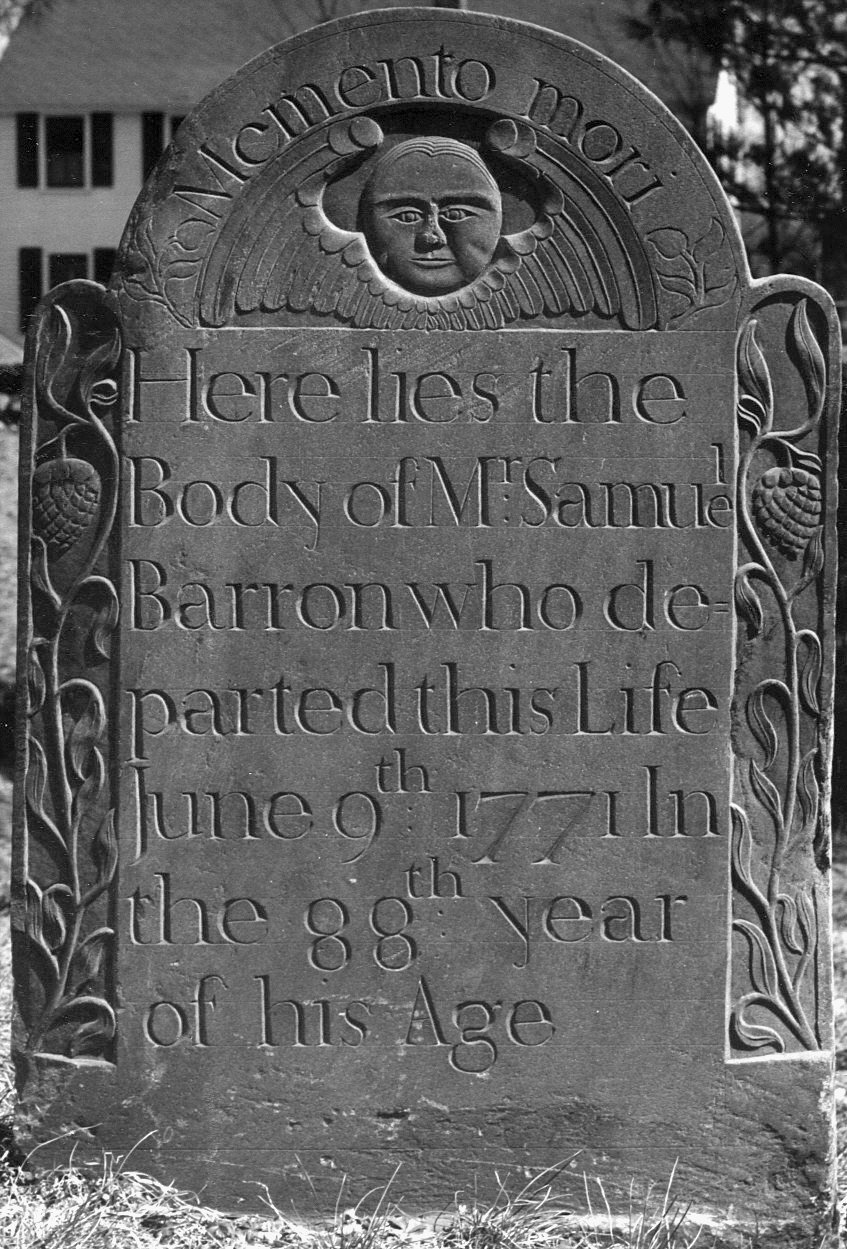 Memento mori
Here lies the
Body of Mʳ: Samuˡe
Barron who de=
parted this Life
June 9ᵗʰ: 1771 In
the 88ᵗʰ: year
of his Age